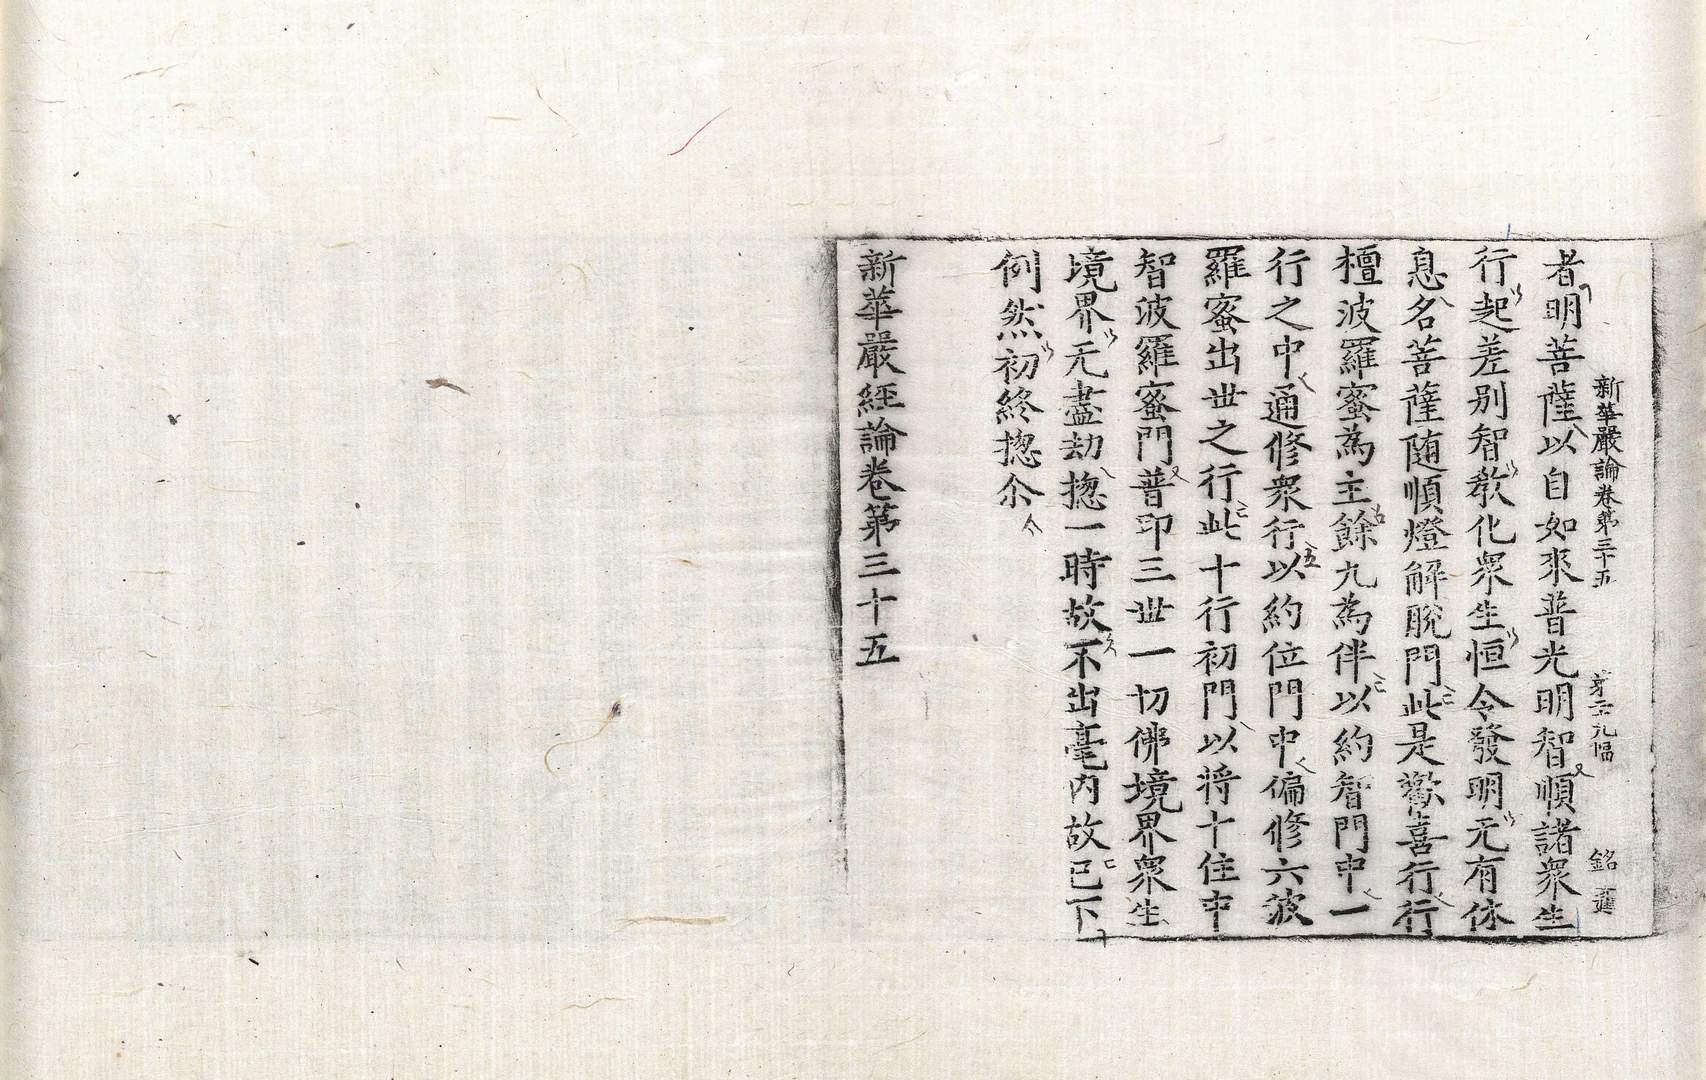 新華嚴論卷第三十五 第二九幅 銘
者明菩薩以自如來普光明智順諸衆生
行起差別智敎化衆生恒令發明无有休
息名菩薩随順燈解脫門此是歡喜行行
檀波羅蜜為主餘九為伴以約智門中一
行之中通修衆行以約位門中偏修六波
羅蜜出世之行此十行初門以將十住中
智波羅蜜門普印三世一切佛境界衆生
境界无盡劫揔一時故不出毫內故已下
例然初終揔尒
新華嚴經論卷第三十五